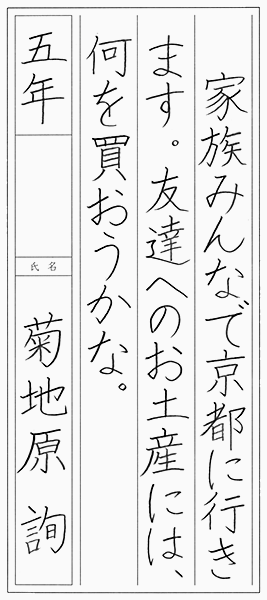 家族みんなで京都に行き
ます。友達へのお土産には、
何を買おうかな。
五年
氏名
菊地原 詢